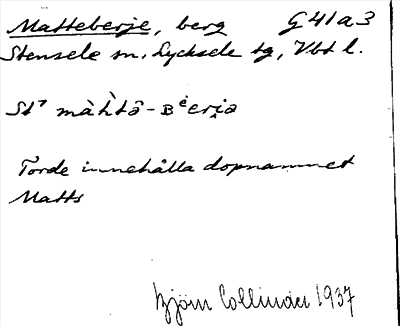 Matteberje, berg G41a3
Stensele sn, Lycksele tg, Vbt l.
St⁷ màh̀tā-ʙėerja
Torde innehålla dopnamnet
Matts
Björn Collinder 1937